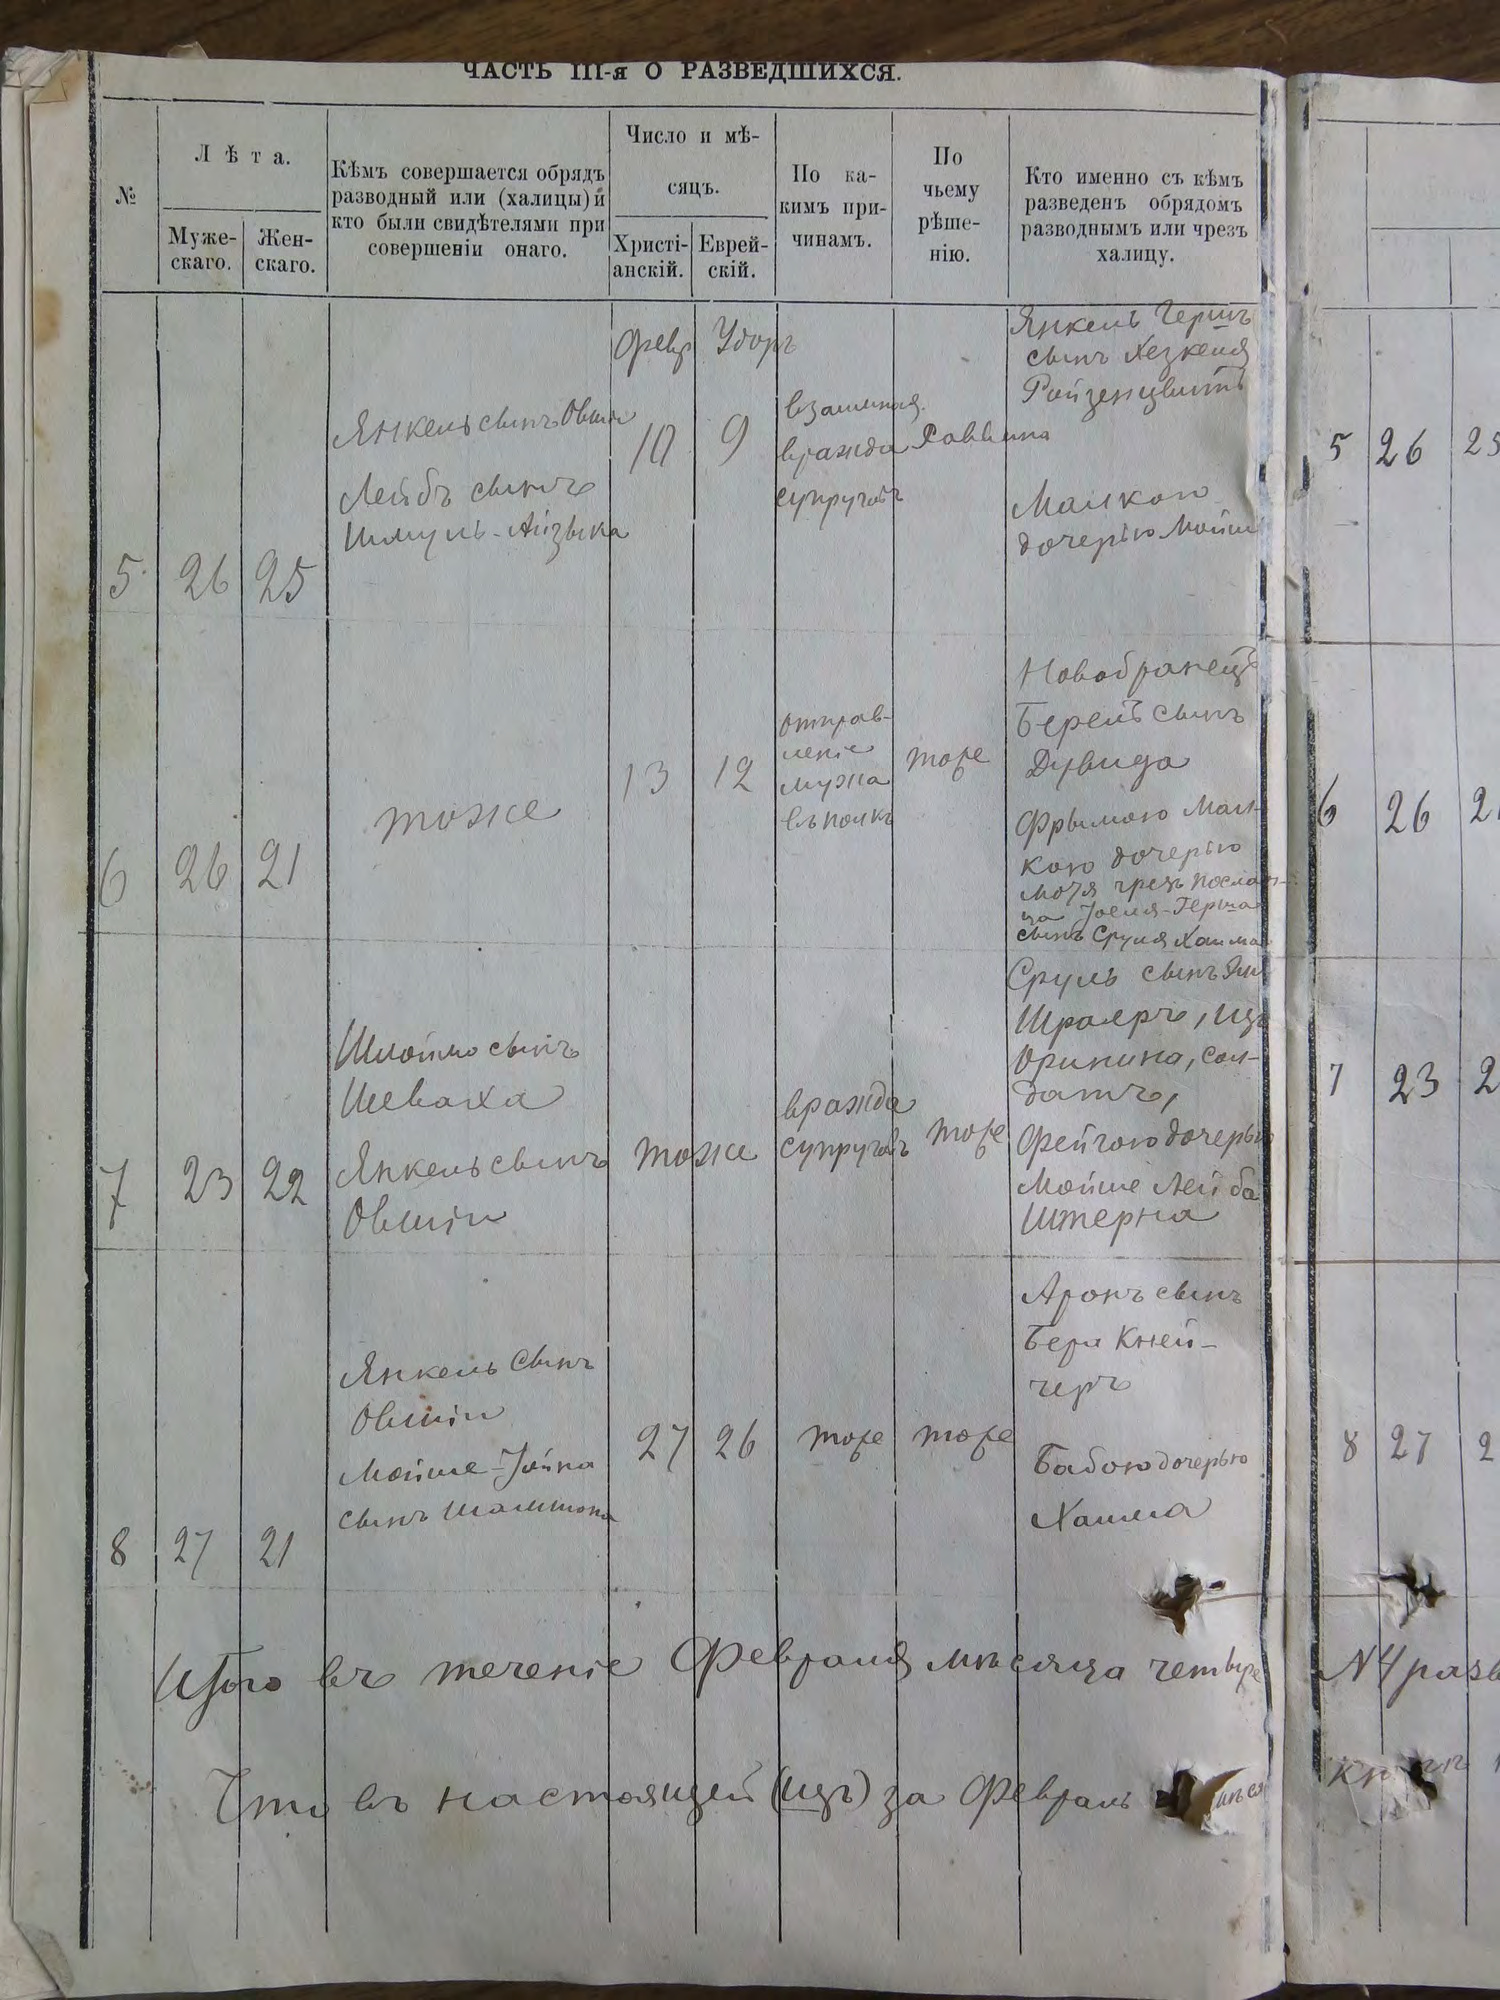 ЧАСТЬ III-я О РАЗВЕДШИХСЯ.
№
Лѣта.
Муже-
скаго.
Жен-
скаго.
Кѣмъ совершается обрядъ
разводный или (халицы) и
кто были свидѣтелями при
совершеніи онаго.
Число и мѣ-
сяцъ.
Христі-
анскій.
Еврей-
скій.
По ка-
кимъ при-
чинамъ.
По
чьему
рѣше-
нію.
Кто именно съ кѣмъ
разведенъ обрядомъ
разводнымъ или чрезъ
халицу.
5
26
25
Янкель сынъ Овши
Лейбъ сынъ
Шмуль-Айзыка
Февр
10
9
взаимная
вражда
супруговъ
Раввина
Янкель Гершъ
сынъ Хезкеля
Ройзенцвитъ
Малкою
дочерью Мойш
6
26
21
тоже
13
12
отправ-
леніе
мужа
въ полкъ
тоже
Новобранецъ
Берелъ сынъ
Дувида
Фрымою Мал-
кою дочерью
чрезъ послан-
ца Іоеля-Герша
сынъ Сруля Хаима
7
23
22
Шлойма сынъ
Шеваха
Янкель сынъ
Овшіи
тоже
вражда
супруговъ
тоже
Сруль сынъ
Шраеръ, изъ
Оринина, сол-
датъ,
Фейгою дочерью
Мойше Лейба
Штерна
8
27
21
Янкель сынъ
Овшіи
Мойше-Іойна
сынъ Шамшона
27
26
тоже
тоже
Аронъ сынъ
Бера Кней-
черъ
Бабою дочерью
Хаима
Итого въ теченіе Февраля мѣсяца четыре
Что въ настоящей (изъ) за Февраль
5 26 25
6 26 2
7 23 2
8 27 2
№ 4 разв